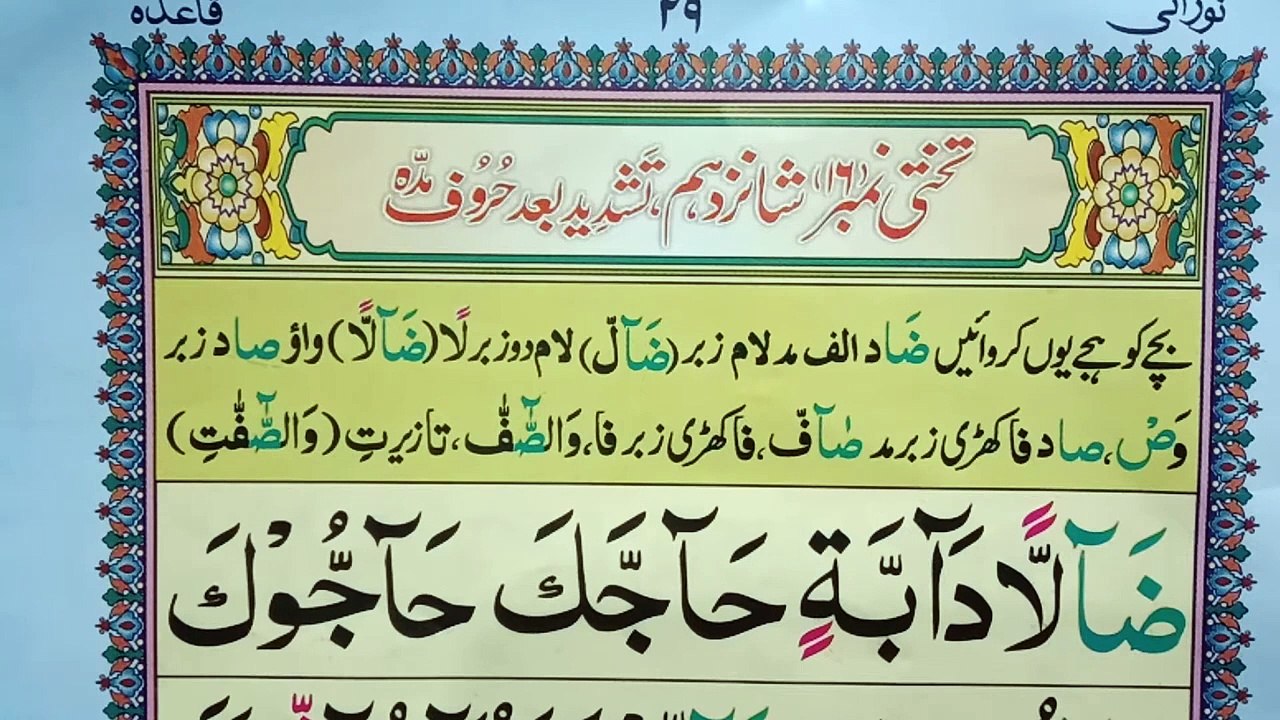 نورانی ۲۹ قاعدہ
تختی نمبر (۱۶) شانزدہم، تَشدِید بعد حُرُوف مدّہ
بچے کو ہجے یوں کروائیں ضَاد الف مد لام زبر (ضَآلّ) لام دو زبر لًا (ضَآلًّا) واؤ صاد زبر
وَصْ، صاد فا کھڑی زبر مد صٰٓافّ، فا کھڑی زبر فا، وَالصّٰٓفّٰ، تا زیر تِ (وَالصّٰٓفّٰتِ)
ضَآلًّا دَآبَّةٍ حَآجَّكَ حَآجُّوْكَ